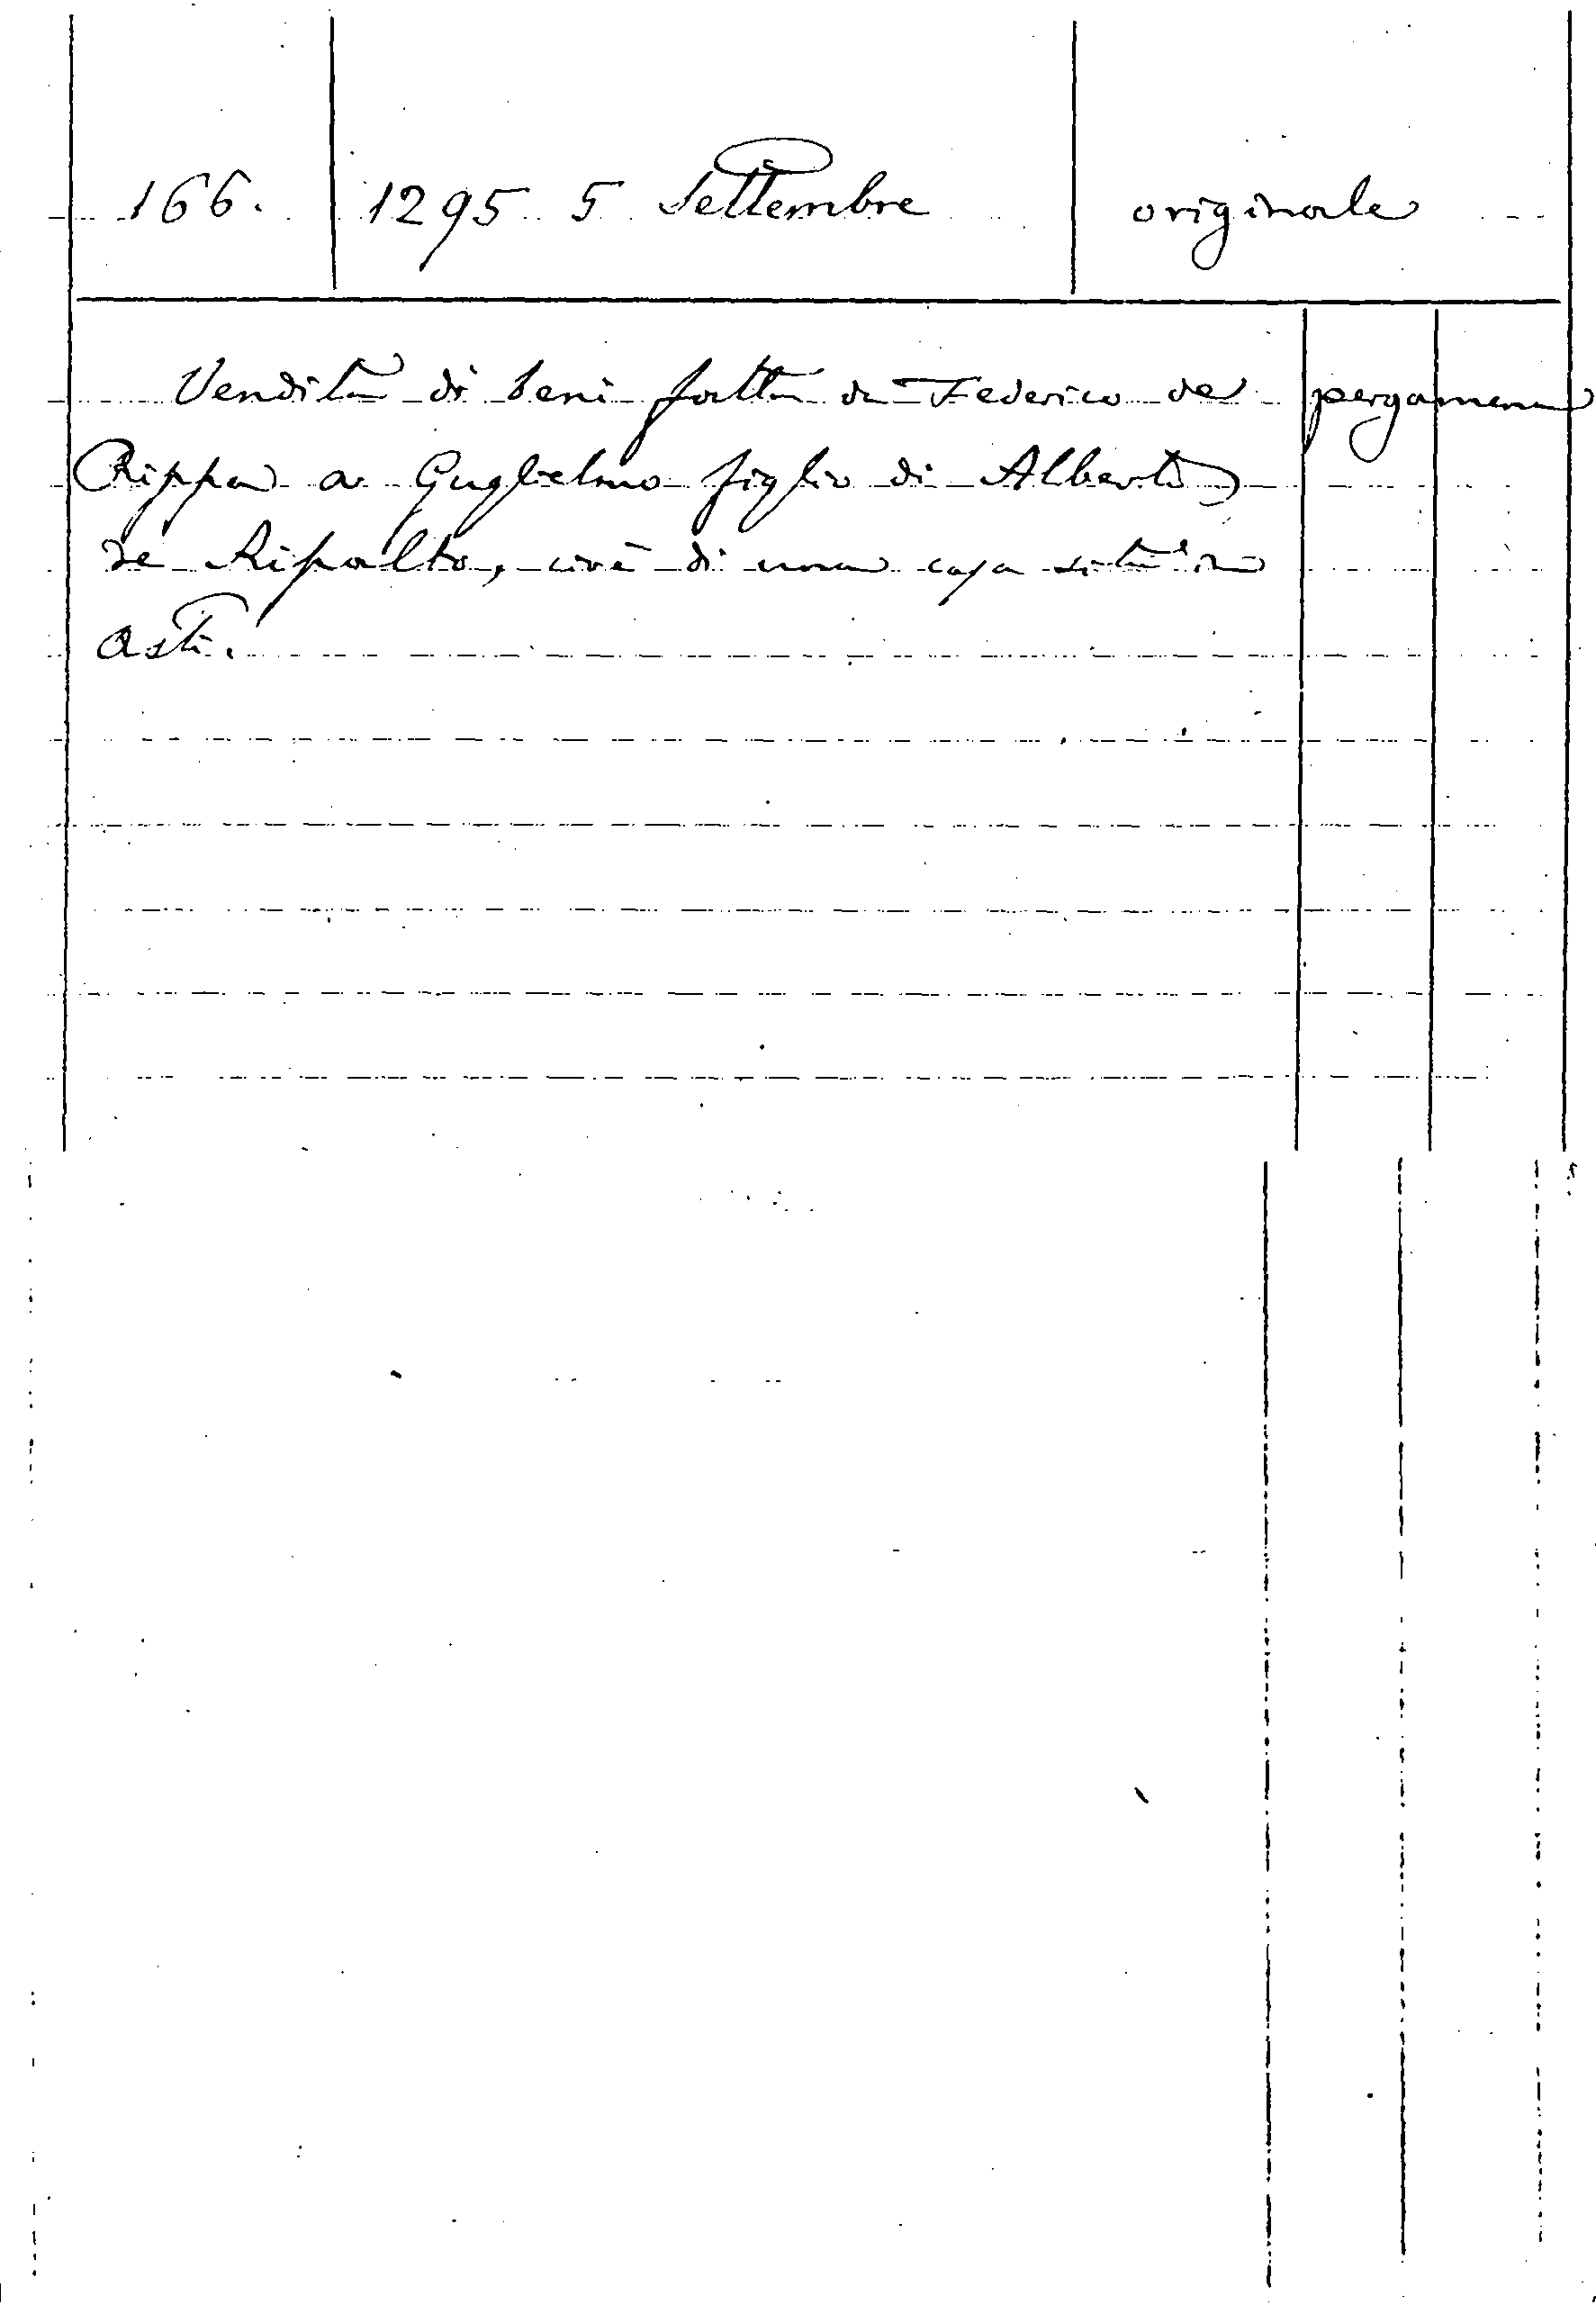 166. 1295 5 Settembre originale
Vendita di beni fatta da Federico de pergamena
Rippa a Guglielmo figlio di Alberto
de Ripalto, cioè di una casa sita in
Asti.